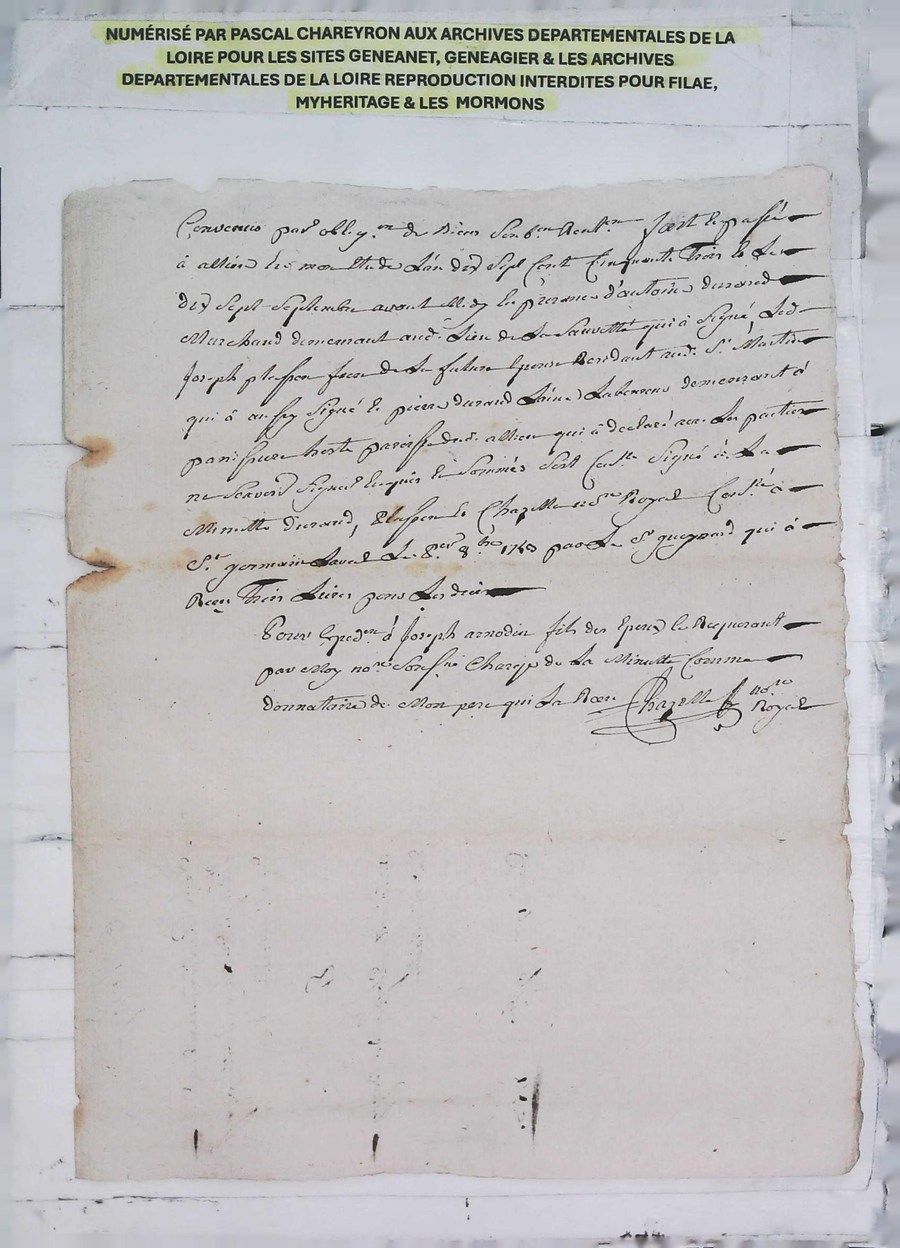 NUMÉRISÉ PAR PASCAL CHAREYRON AUX ARCHIVES DEPARTEMENTALES DE LA
LOIRE POUR LES SITES GENEANET, GENEAGIER & LES ARCHIVES
DEPARTEMENTALES DE LA LOIRE REPRODUCTION INTERDITES POUR FILAE,
MYHERITAGE & LES MORMONS
Convenus par obligon de biens fait et passé
à allieu es mon Etude L'an dix Sept Cent Cinquante Trois & Le
dix Sept Septembre avant Midy En présence d'antoine durand
Marchand demeurant aud. Lieu de La Sauvetté qui à Signé, Led.
Joseph plasson frere de La future Epouse Residant aud. St. Martin
qui à aussy Signé & pierre durand Laine Laboureur demeurant à
paroisse dud. allieu qui à declaré avec Les parties
ne Scavoir Signer Enquis & Sommés Sont Signé à La
Minutte durand, plasson & Chazelle nre Royal Conllé à
St. germain Laval Le 8bre 1753 par Le Sr gueynard qui à
Reçu Trois Livres pour Les droits
Pour Expedon à Joseph arnodin fils des Epoux Le Requerant
par Moy nore Soussigné Chargé de La Minutte Comme
donnataire de Mon pere qui La Reçu Chazelle nore
Royal